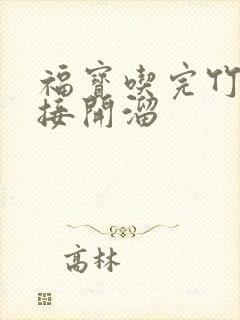 福寶喫完竹
接開溜
高林